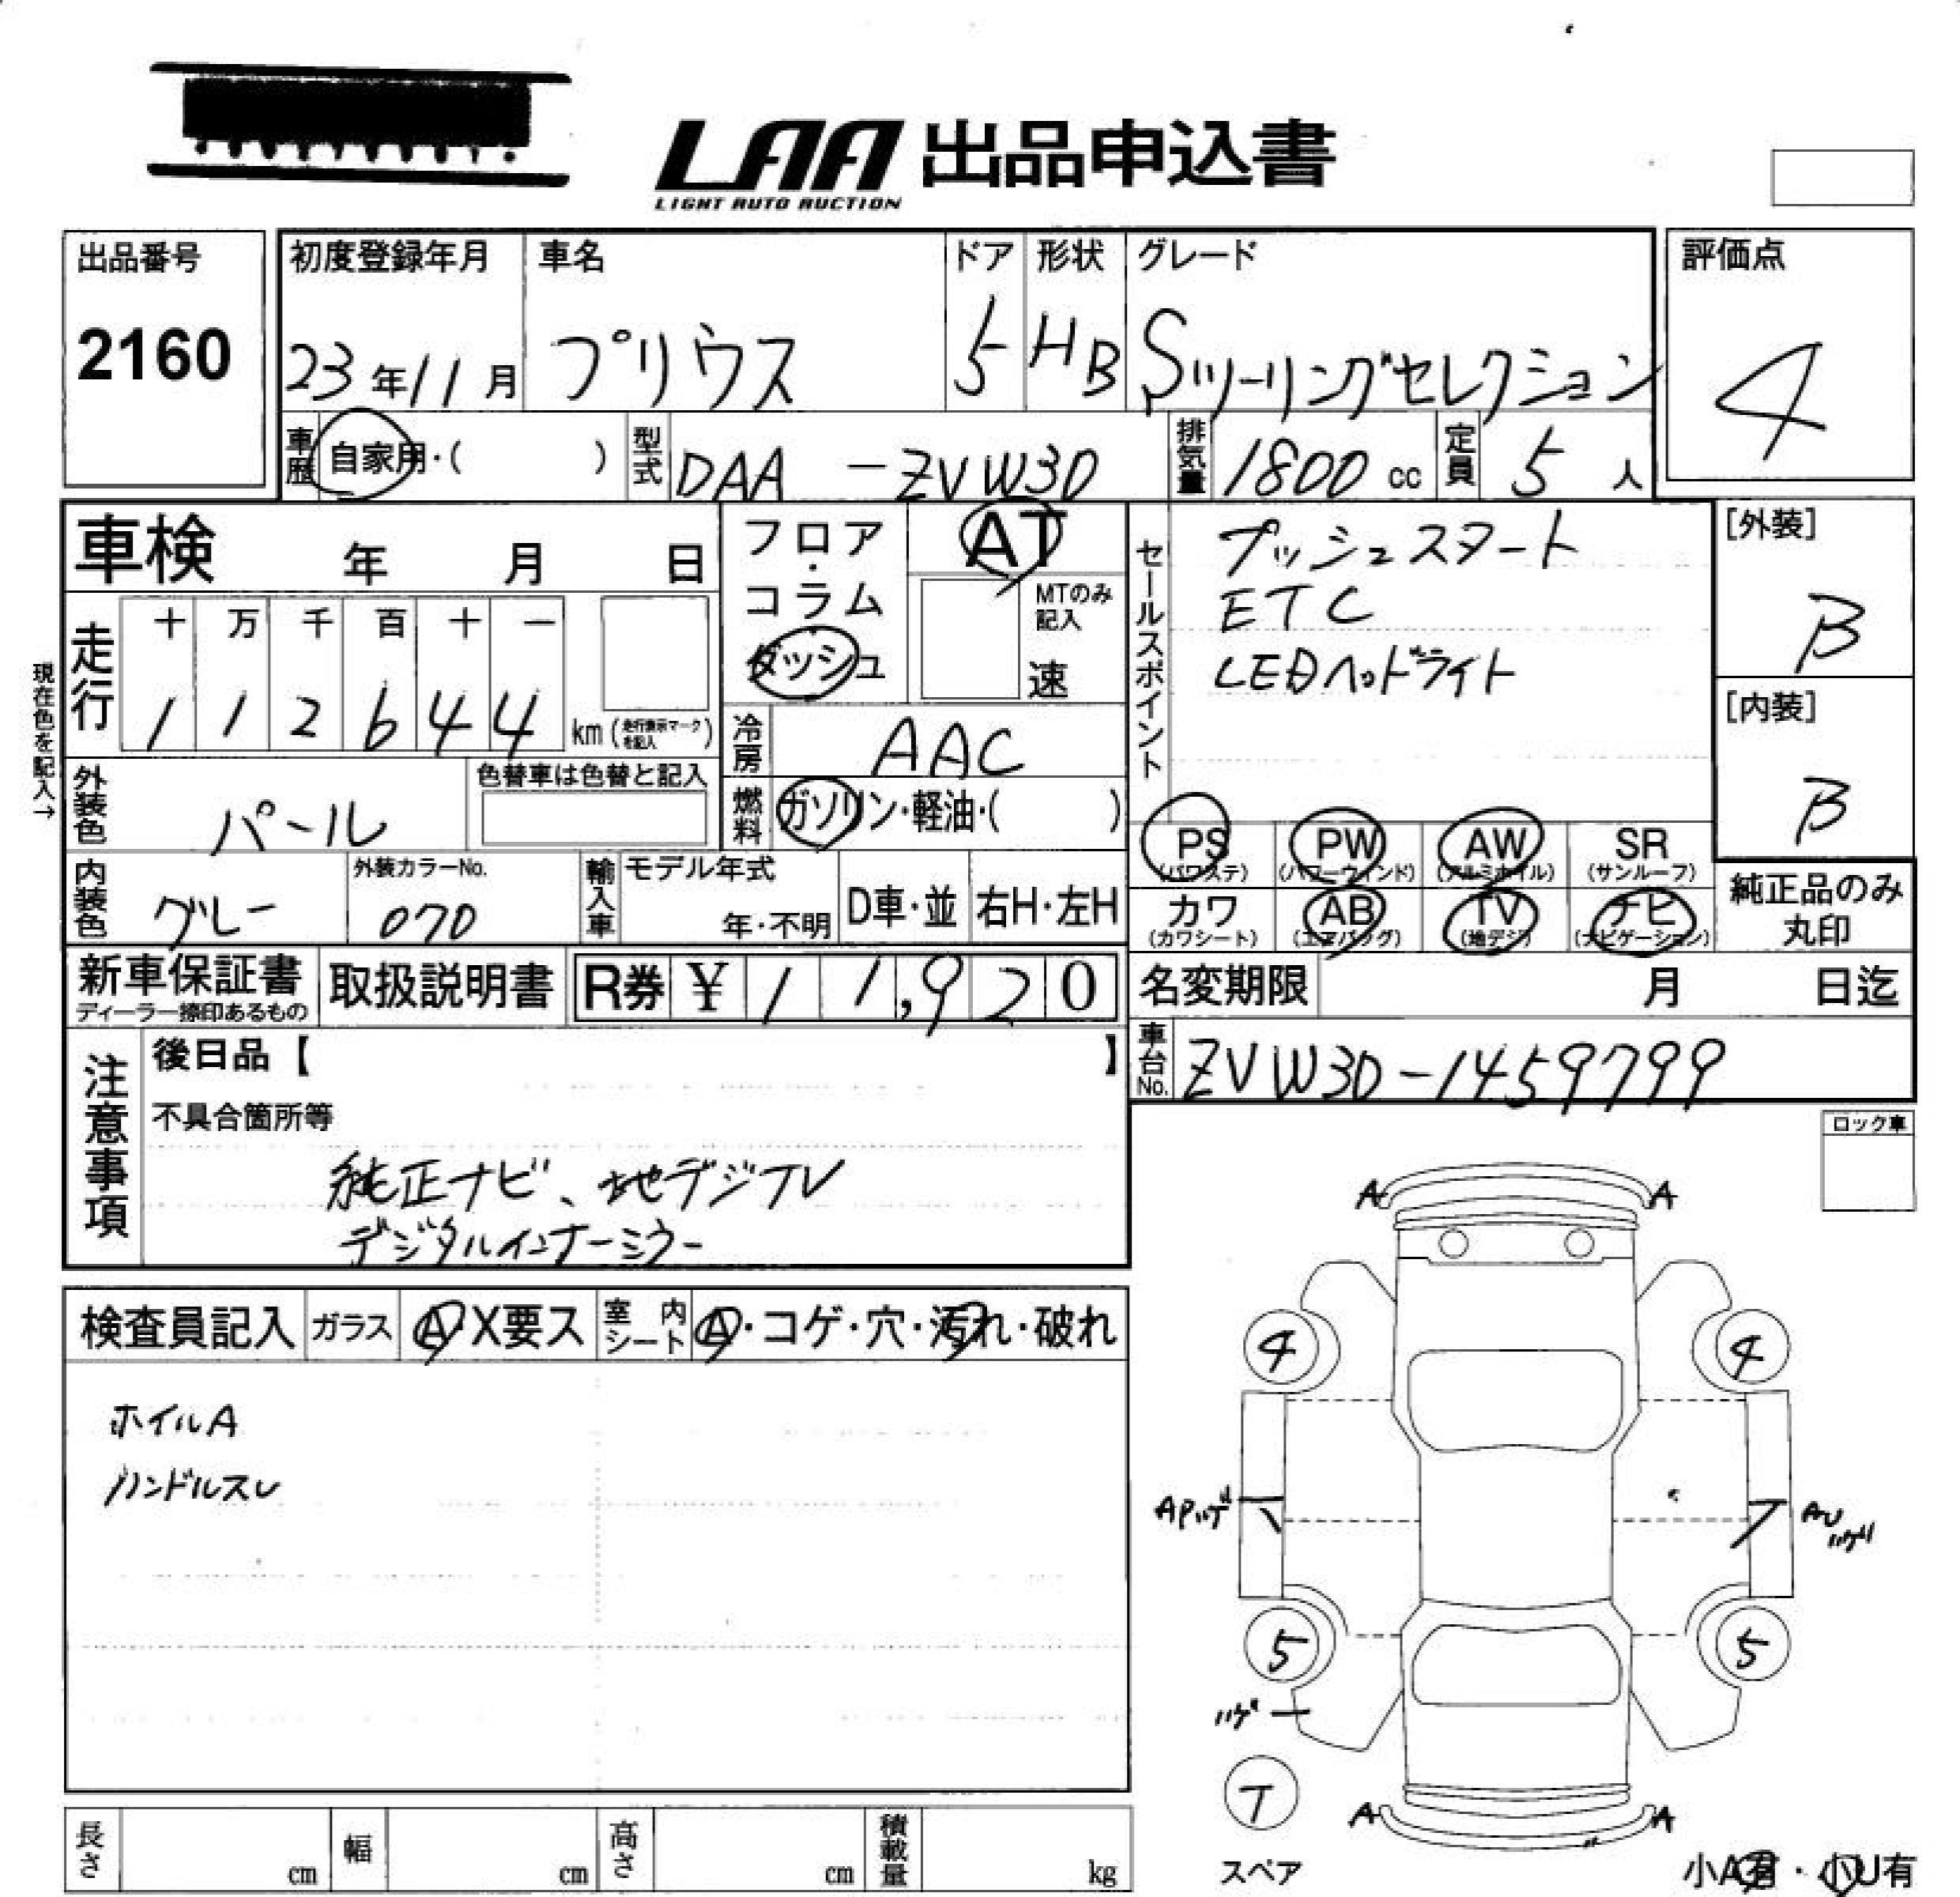 LAA 出品申込書
LIGHT AUTO AUCTION
出品番号
2160
初度登録年月
23年11月
車名
プリウス
ドア
5
形状
HB
グレード
Sツーリングセレクション
評価点
4
車歴
自家用・( )
型式
DAA -ZVW30
排気量
1800 cc
定員
5 人
車検 年 月 日
フロア・コラム
ダッシュ
AT
MTのみ記入
速
セールスポイント
プッシュスタート
ETC
LEDヘッドライト
[外装]
B
[内装]
B
現在色を記入→
走行
十 万 千 百 十 一
1 1 2 6 4 4 km (走行表示マークを記入)
冷房
AAC
外装色
パール
色替車は色替と記入
燃料
ガソリン・軽油・( )
PS
(パワステ)
PW
(パワーウインド)
AW
(アルミホイル)
SR
(サンルーフ)
カワ
(カワシート)
AB
(エアバッグ)
TV
(地デジ)
ナビ
(ナビゲーション)
純正品のみ
丸印
内装色
グレー
外装カラーNo.
070
輸入車
モデル年式
年・不明
D車・並
右H・左H
新車保証書
ディーラー捺印あるもの
取扱説明書
R券 ¥ 1 1,9 2 0
名変期限 月 日迄
車台No.
ZVW30-1459799
注意事項
後日品【 】
不具合箇所等
純正ナビ、地デジTV
デジタルインナーミラー
ロック車
検査員記入
ガラス
A・X要ス
室内シート
A・コゲ・穴・汚れ・破れ
ホイルA
ハンドルスレ
A A
4 4
APハゲ
AU
ハゲ
5 5
ハゲ
T
スペア
A A
小A有・小U有
長さ cm
幅 cm
高さ cm
積載量 kg